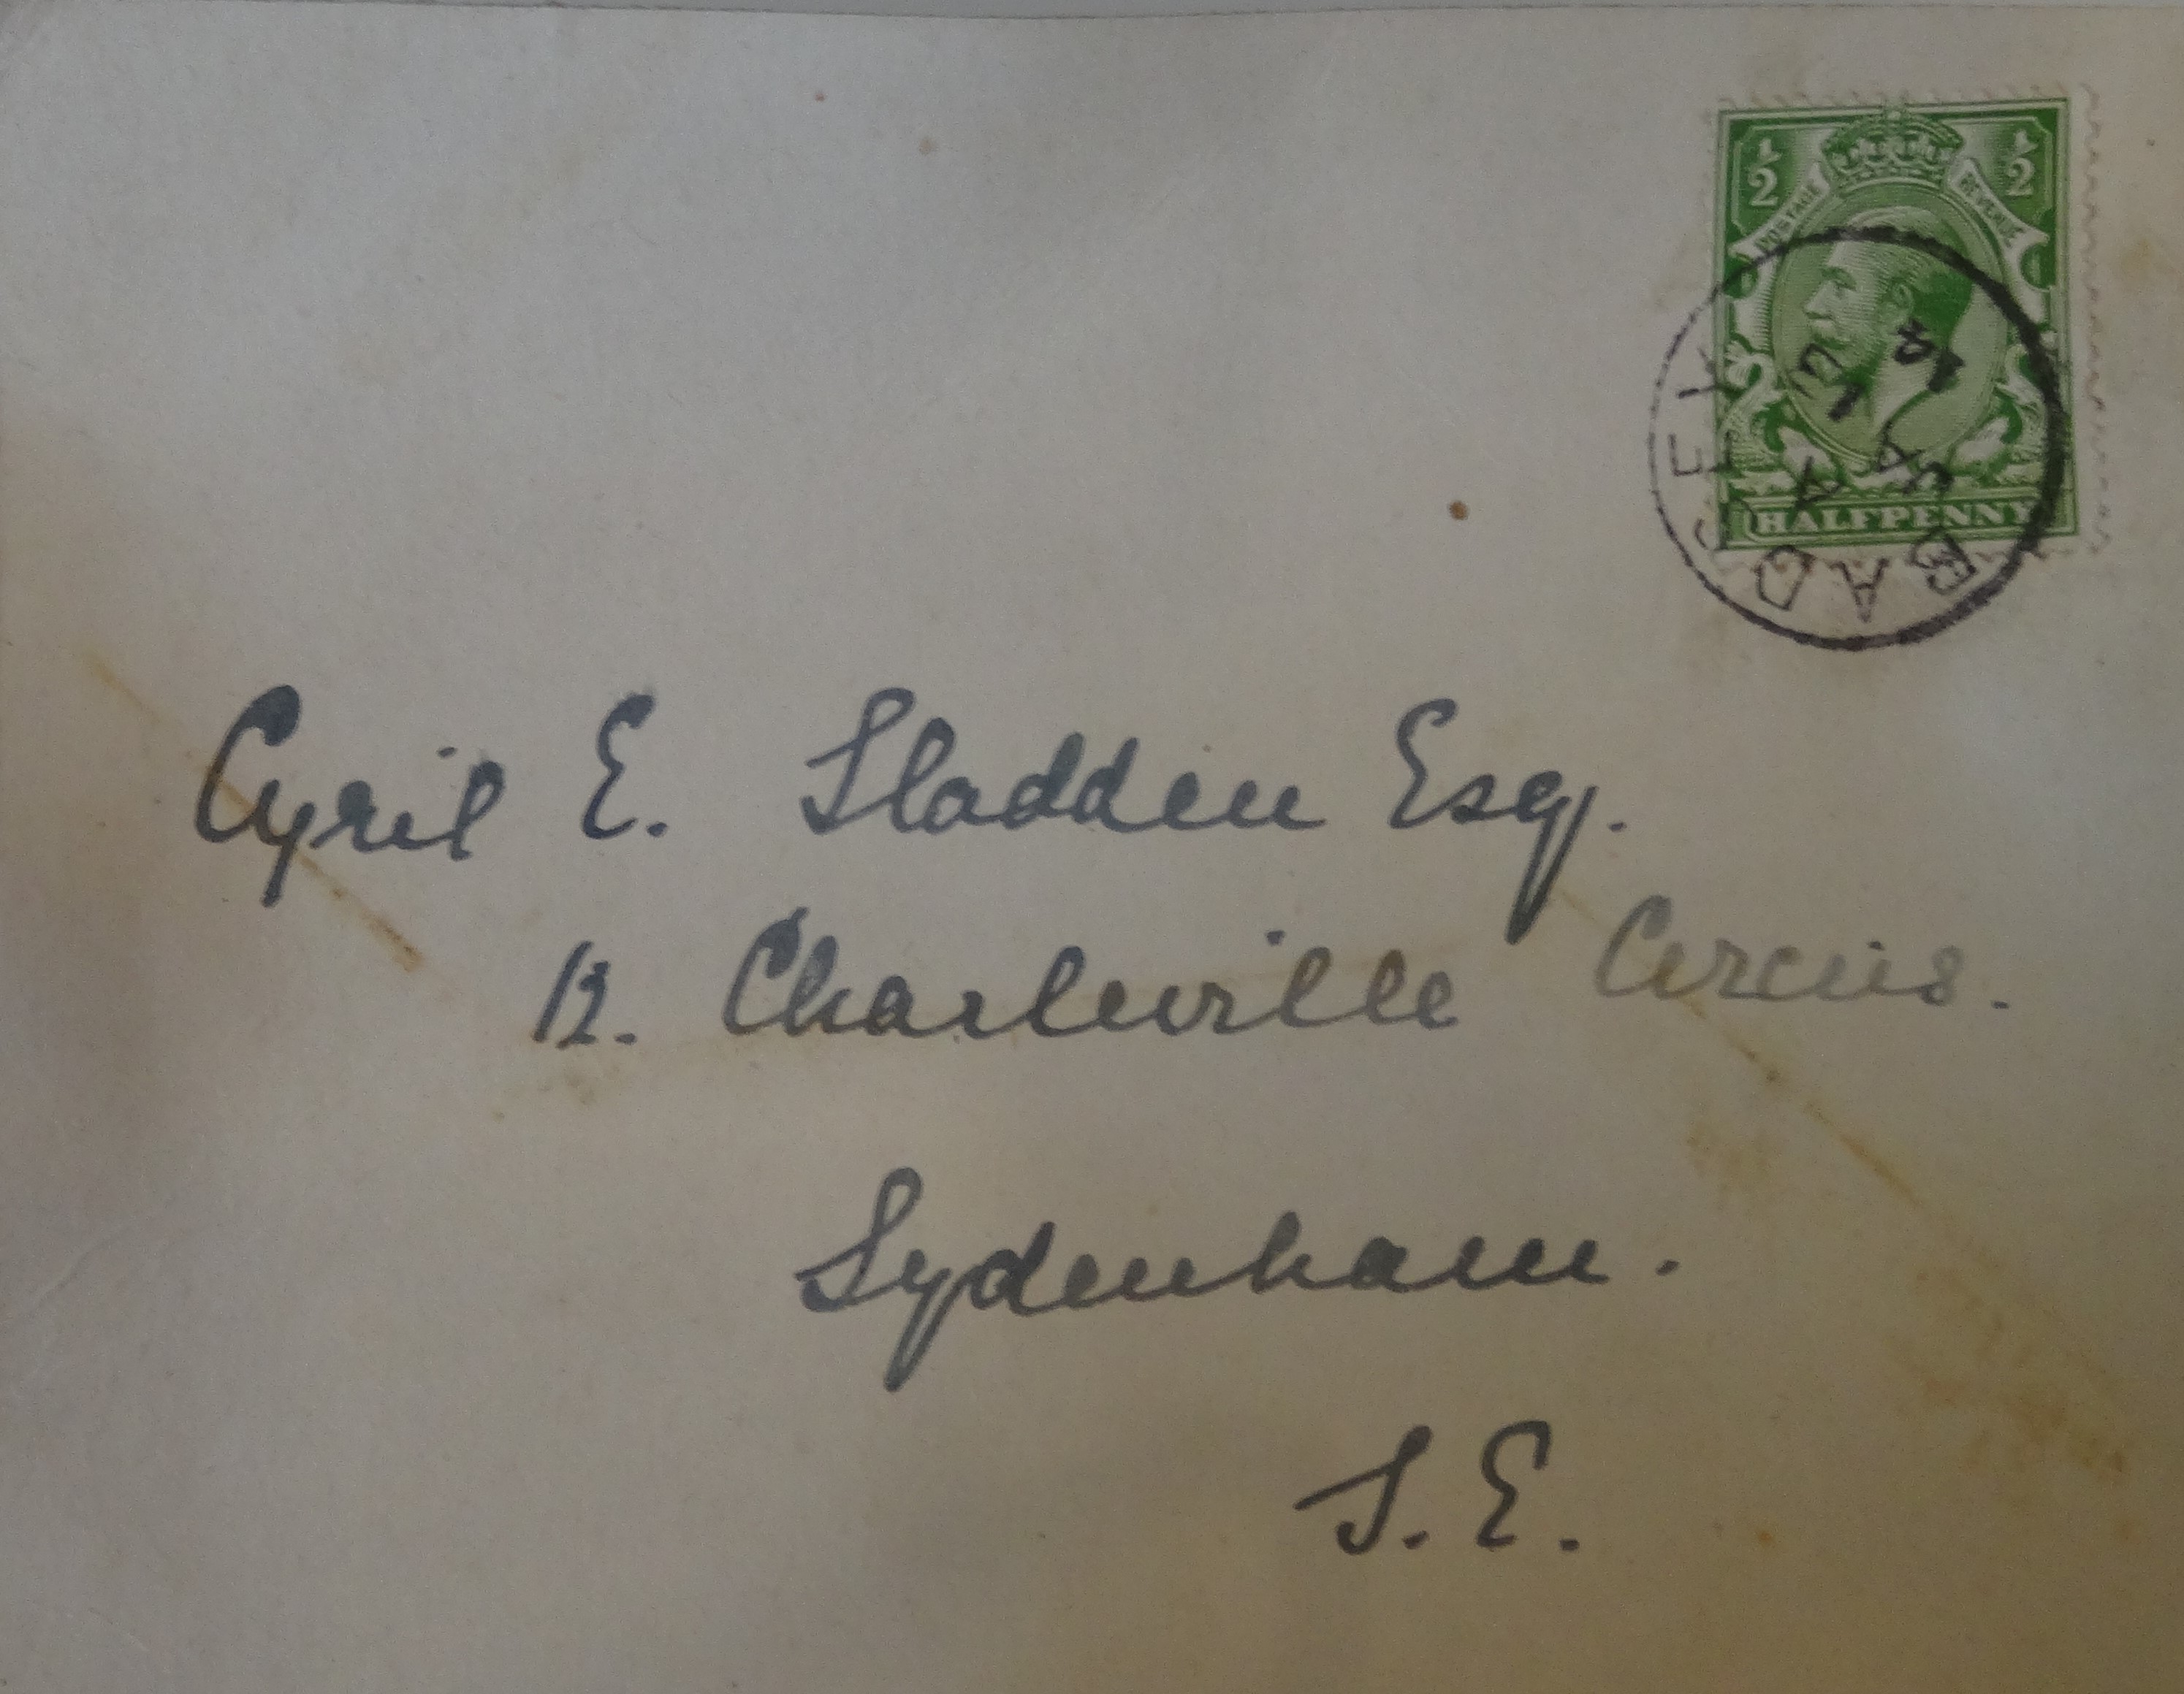 ½ ½
POSTAGE REVENUE
HALFPENNY
BADSEY
A
Cyril E. Sladden Esq.
12. Charleville Circus.
Sydenham.
S.E.